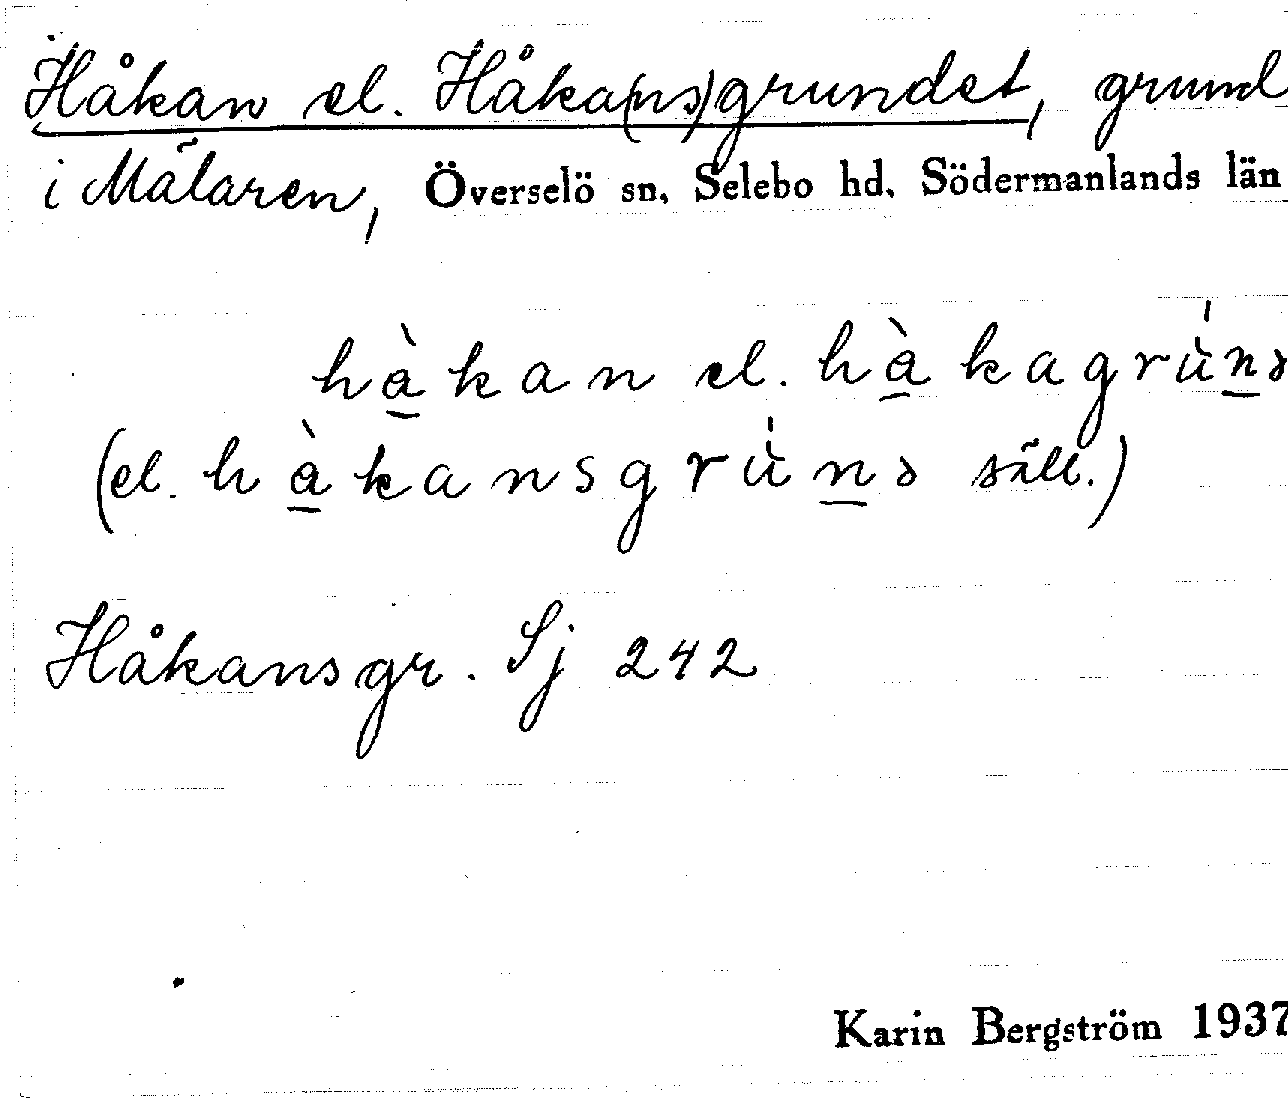 Håkan el. Håka(ns)grundet, grund
i Mälaren, Överselö sn, Selebo hd, Södermanlands län
hå̀kan el. hå̀kagrù́ns
(el. hå̀kansgrù́ns säll.)
Håkansgr. Sj 242
Karin Bergström 1937